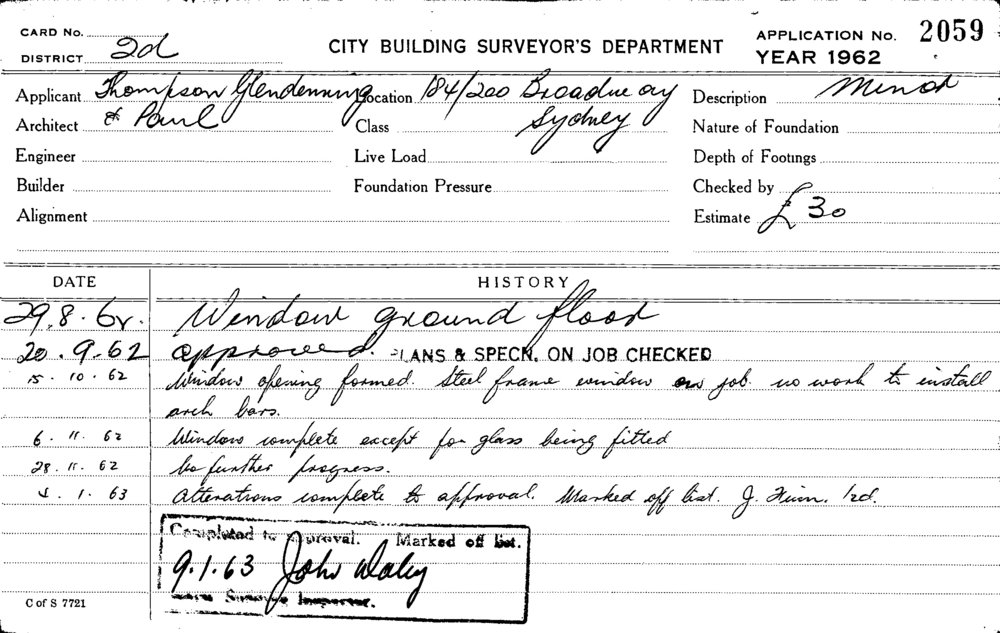 CARD No.
DISTRICT 2d
CITY BUILDING SURVEYOR'S DEPARTMENT
APPLICATION No. 2059
YEAR 1962
Applicant Thompson Glendenning Location 184/200 Broadway Description Minor
Architect & Paul Class Sydney Nature of Foundation
Engineer Live Load Depth of Footings
Builder Foundation Pressure Checked by
Alignment Estimate £30
DATE HISTORY
29.8.62. Window ground floor
20.9.62 approved. PLANS & SPECN. ON JOB CHECKED
15.10.62 Window opening formed. Steel frame window on job. no work to install
arch bars.
6.11.62 Window complete except for glass being fitted
28.11.62 No further progress.
1.63 Alterations complete to approval. Marked off list. J.
Completed to approval. Marked off list.
9.1.63 John Daley
Inspector.
C of S 7721